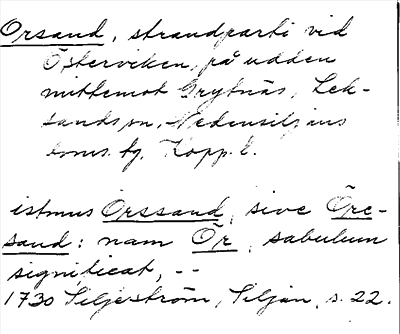 Orsand, strandparti vid
Österviken, på udden
mittemot Grytnäs, Lek-
sands sn, Nedansiljans
doms. tg. Kopp. l.
istmus Orssand, sive Öre-
sand: nam Ör, sabulum
significat, --
1730 Siljeström, Siljan, s. 22.